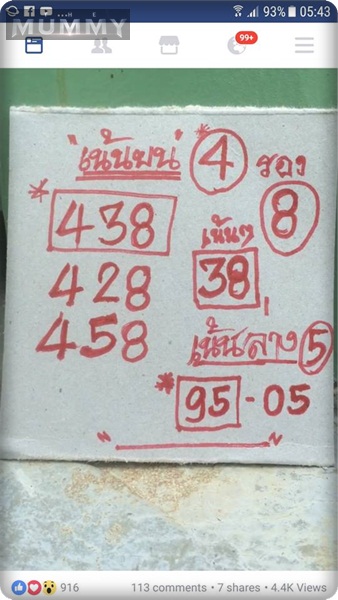 MUMMY
93% 05:43
99+
"เน้นบน" *4 รอง 8
*438
เน้นๆ
428 38
458
เน้นล่าง 5
*95-05
916 113 comments • 7 shares • 4.4K Views